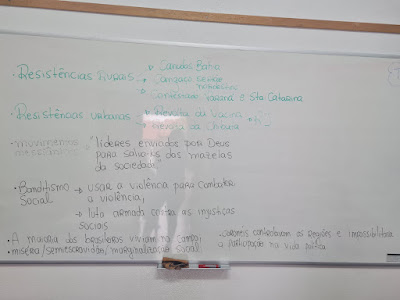 → Canudos Bahia
• Resistências rurais → Cangaço sertão nordestino
→ Contestado Paraná e Sta Catarina
• Resistências urbanas → Revolta da Vacina
→ Revolta da Chibata
• movimentos messiânicos → "líderes enviados por Deus
para salvá-los das mazelas
da sociedade"
• Banditismo Social → usar a violência para combater
a violência;
→ luta armada contra as injustiças
sociais
• A maioria dos brasileiros viviam no campo;
• miséria/semiescravidão/marginalização social.
• coronéis controlavam as regiões e impossibilitava
a participação na vida política